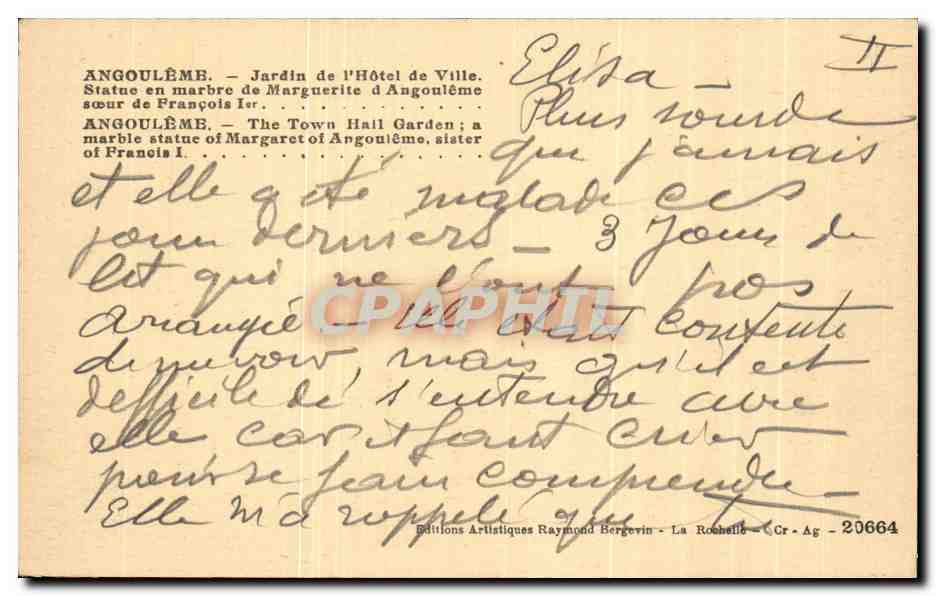 II
ANGOULÊME. – Jardin de l'Hôtel de Ville.
Statue en marbre de Marguerite d'Angoulême
sœur de François Ier. . . . . . . . . . . . . .
ANGOULÊME. – The Town Hall Garden ; a
marble statue of Margaret of Angoulême, sister
of Francis I. . . . . . . . . . . . . . . . . .
Elisa –
Plus sourde
que jamais
et elle a été malade ces
jours derniers – 3 jours de
lit qui ne l'ont pas
arrangée – elle était contente
de me voir, mais qu'il est
difficile de s'entendre avec
elle car il faut crier
pour se faire comprendre –
Elle m'a rappelé que
Editions Artistiques Raymond Bergevin - La Rochelle - Cr - Ag - 20664
CPAPHIL